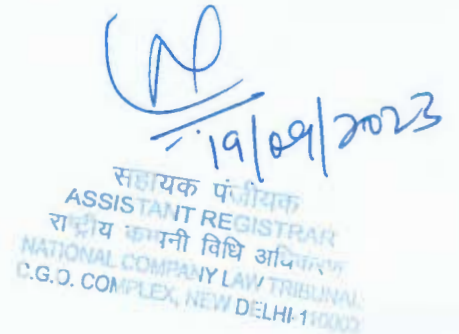 19/09/2023
सहायक पंजीयक
ASSISTANT REGISTRAR
राष्ट्रीय कम्पनी विधि अधिकरण
NATIONAL COMPANY LAW TRIBUNAL
C.G.O. COMPLEX, NEW DELHI-110003